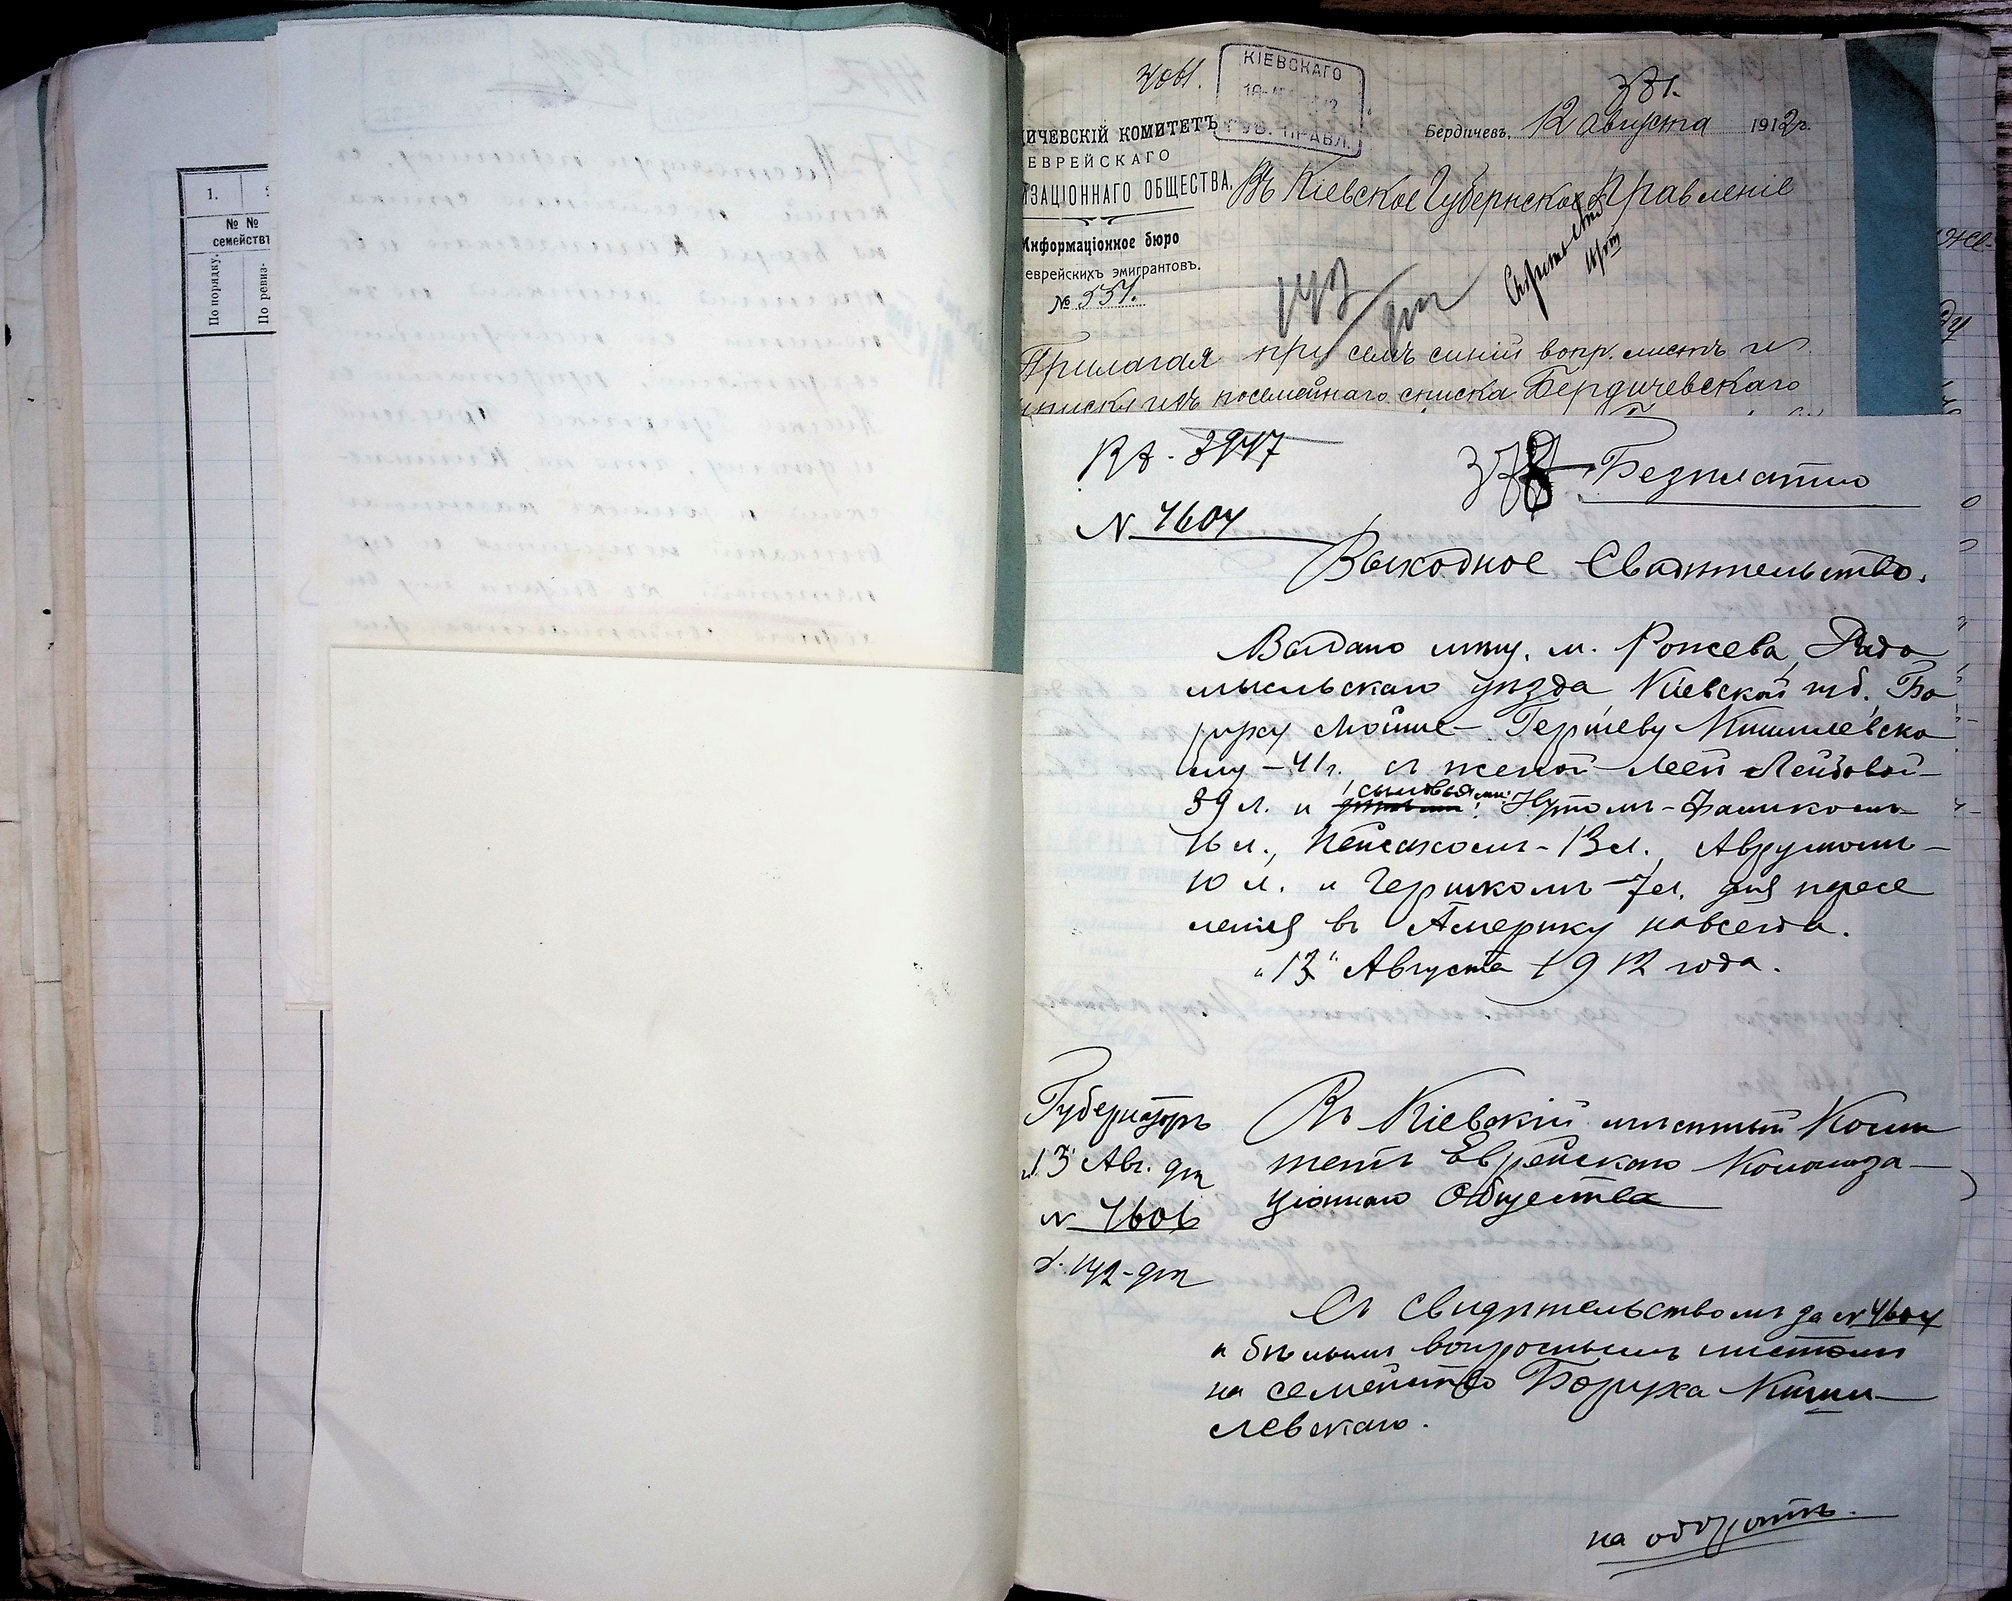 1.
№ №
семействъ
По порядку.
По ревиз-
КІЕВСКАГО
ГУБ. ПРАВЛ.
381.
ДИЧЕВСКІЙ КОМИТЕТЪ
ЕВРЕЙСКАГО
ИЗАЦІОННАГО ОБЩЕСТВА.
Информаціонное бюро
еврейскихъ эмигрантовъ.
№ 557.
Бердичевъ, 12 августа 1912 г.
Въ Кіевское Губернское Правленіе
Прилагая при семъ синій вопр. листъ и
выписку изъ посемейнаго списка Бердичевскаго
378
Безплатно
N 4604
Выходное Свидѣтельство.
Выдано мѣщ. м. Рожева, Радо
мысльскаго уѣзда Кіевской губ. Бо
руху Мойше-Гершеву Кишилевско
му - 41 г. съ женой Леей Лейбовой -
39 л. и сыновьями: Нутомъ-Фамикомъ
16 л., Пейсахомъ - 13 л., Аврумомъ -
10 л. и Гершкомъ - 7 л. для пересе
ленія въ Америку навсегда.
"13" Августа 1912 года.
Губернаторъ
13 Авг. дня
N 4606
Въ Кіевскій мѣстный Коми
тетъ Еврейскаго Колониза-
ціоннаго Общества
Съ свидѣтельствомъ за N 4604
и бѣлымъ вопроснымъ листомъ
на семейство Боруха Киши-
левскаго.
на оборотѣ.